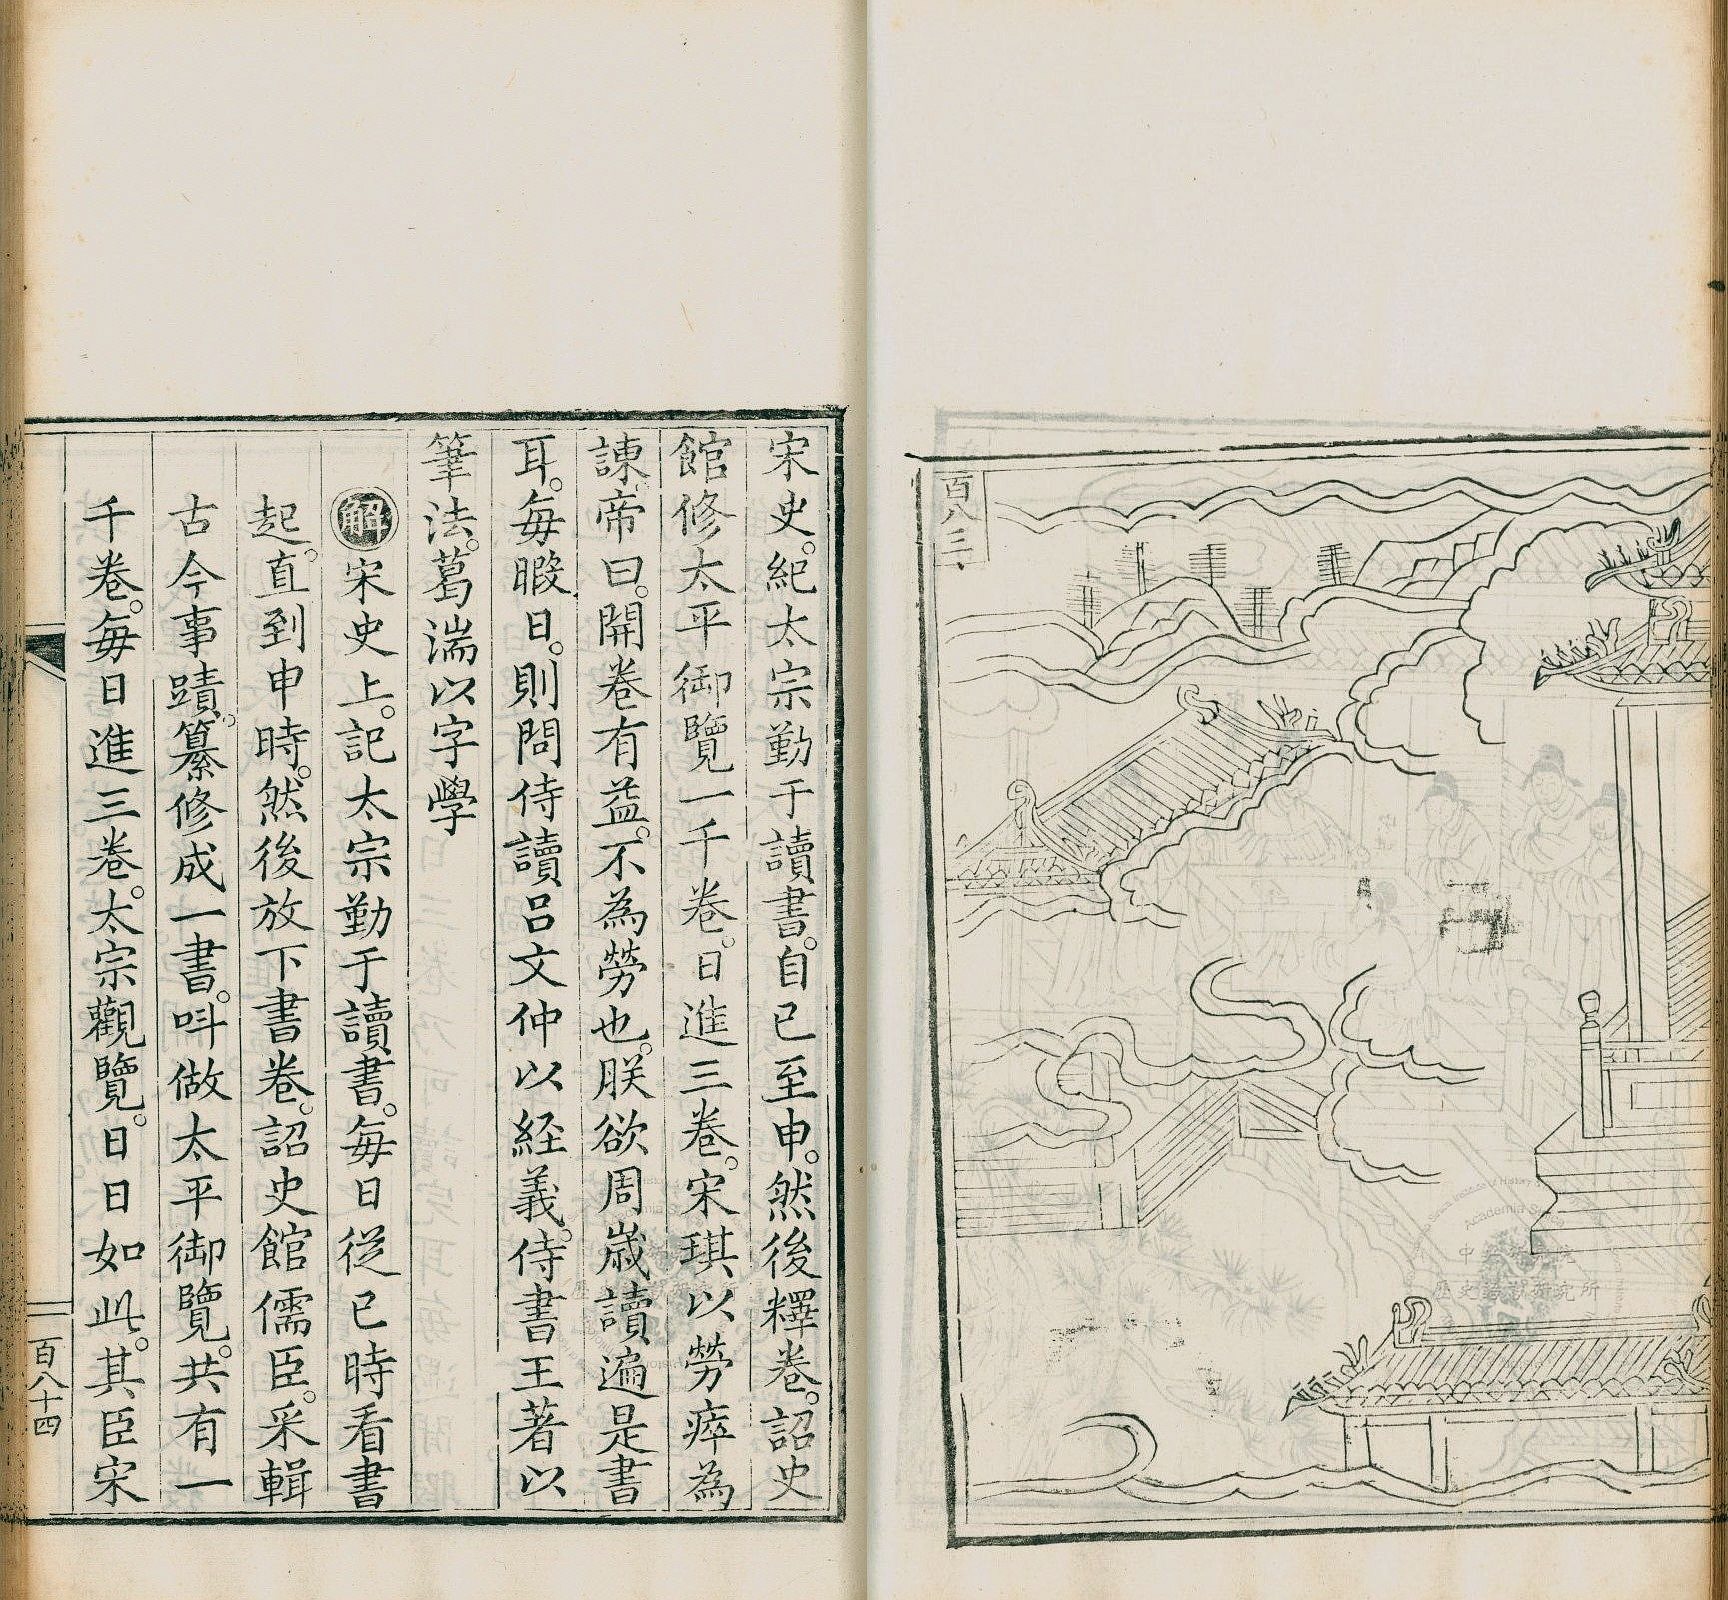 百八三
宋史。紀太宗勤于讀書。自巳至申。然後釋卷。詔史
館修太平御覽一千卷。日進三卷。宋琪以勞瘁為
諫。帝曰。開卷有益。不為勞也。朕欲周歲讀遍是書
耳。每暇日。則問侍讀呂文仲以經義。侍書王著以
筆法。葛湍以字學
解宋史上。記太宗勤于讀書。每日從巳時看書
起。直到申時。然後放下書卷。詔史館儒臣。采輯
古今事蹟。纂修成一書。叫做太平御覽。共有一
千卷。每日進三卷。太宗觀覽。日日如此。其臣宋
百八十四
中央研究院
歷史語言研究所
Academia Sinica